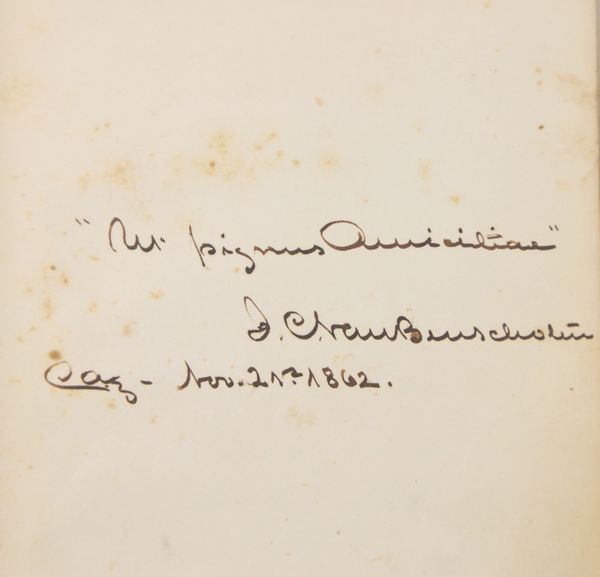 "Ut pignus Amicitiae"
J. C. VanBenschoten
Caz- Nov. 21st 1862.